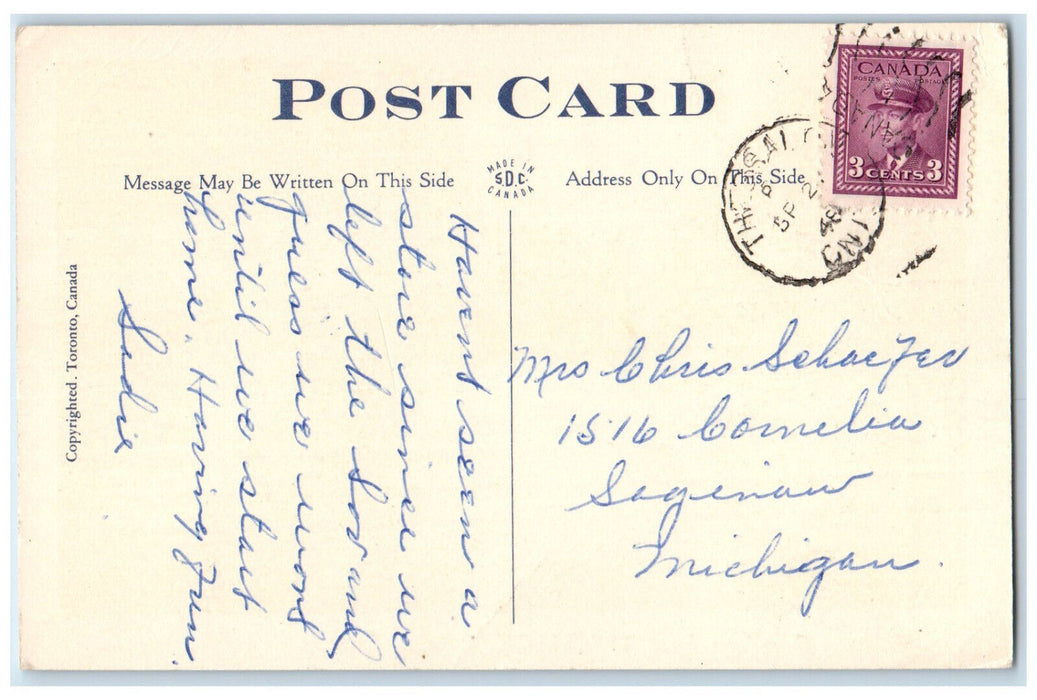 POST CARD
Message May Be Written On This Side
MADE IN
S.D.C.
CANADA
Address Only On This Side
CANADA
POSTES POSTAGE
3 CENTS 3
THESSALON
PM
SP 2
48
ONT
Havent seen a
store since we
left the Soo and
guess we wont
until we start
home. Having fun.
Sadie
Mrs Chris Schaefer
1516 Cornelia
Saginaw
Michigan.
Copyrighted. Toronto, Canada